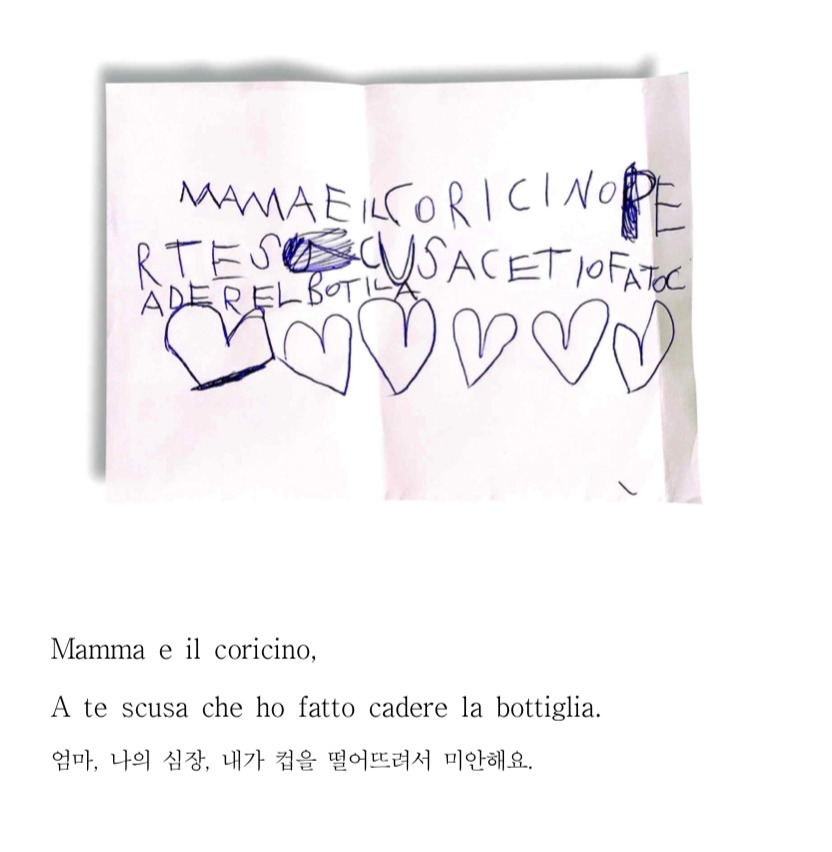 MAMA E IL CORICINO PE
RTE SCUSA CE TIO FATO C
ADERE L BOTILA
Mamma e il coricino,
A te scusa che ho fatto cadere la bottiglia.
엄마, 나의 심장, 내가 컵을 떨어뜨려서 미안해요.